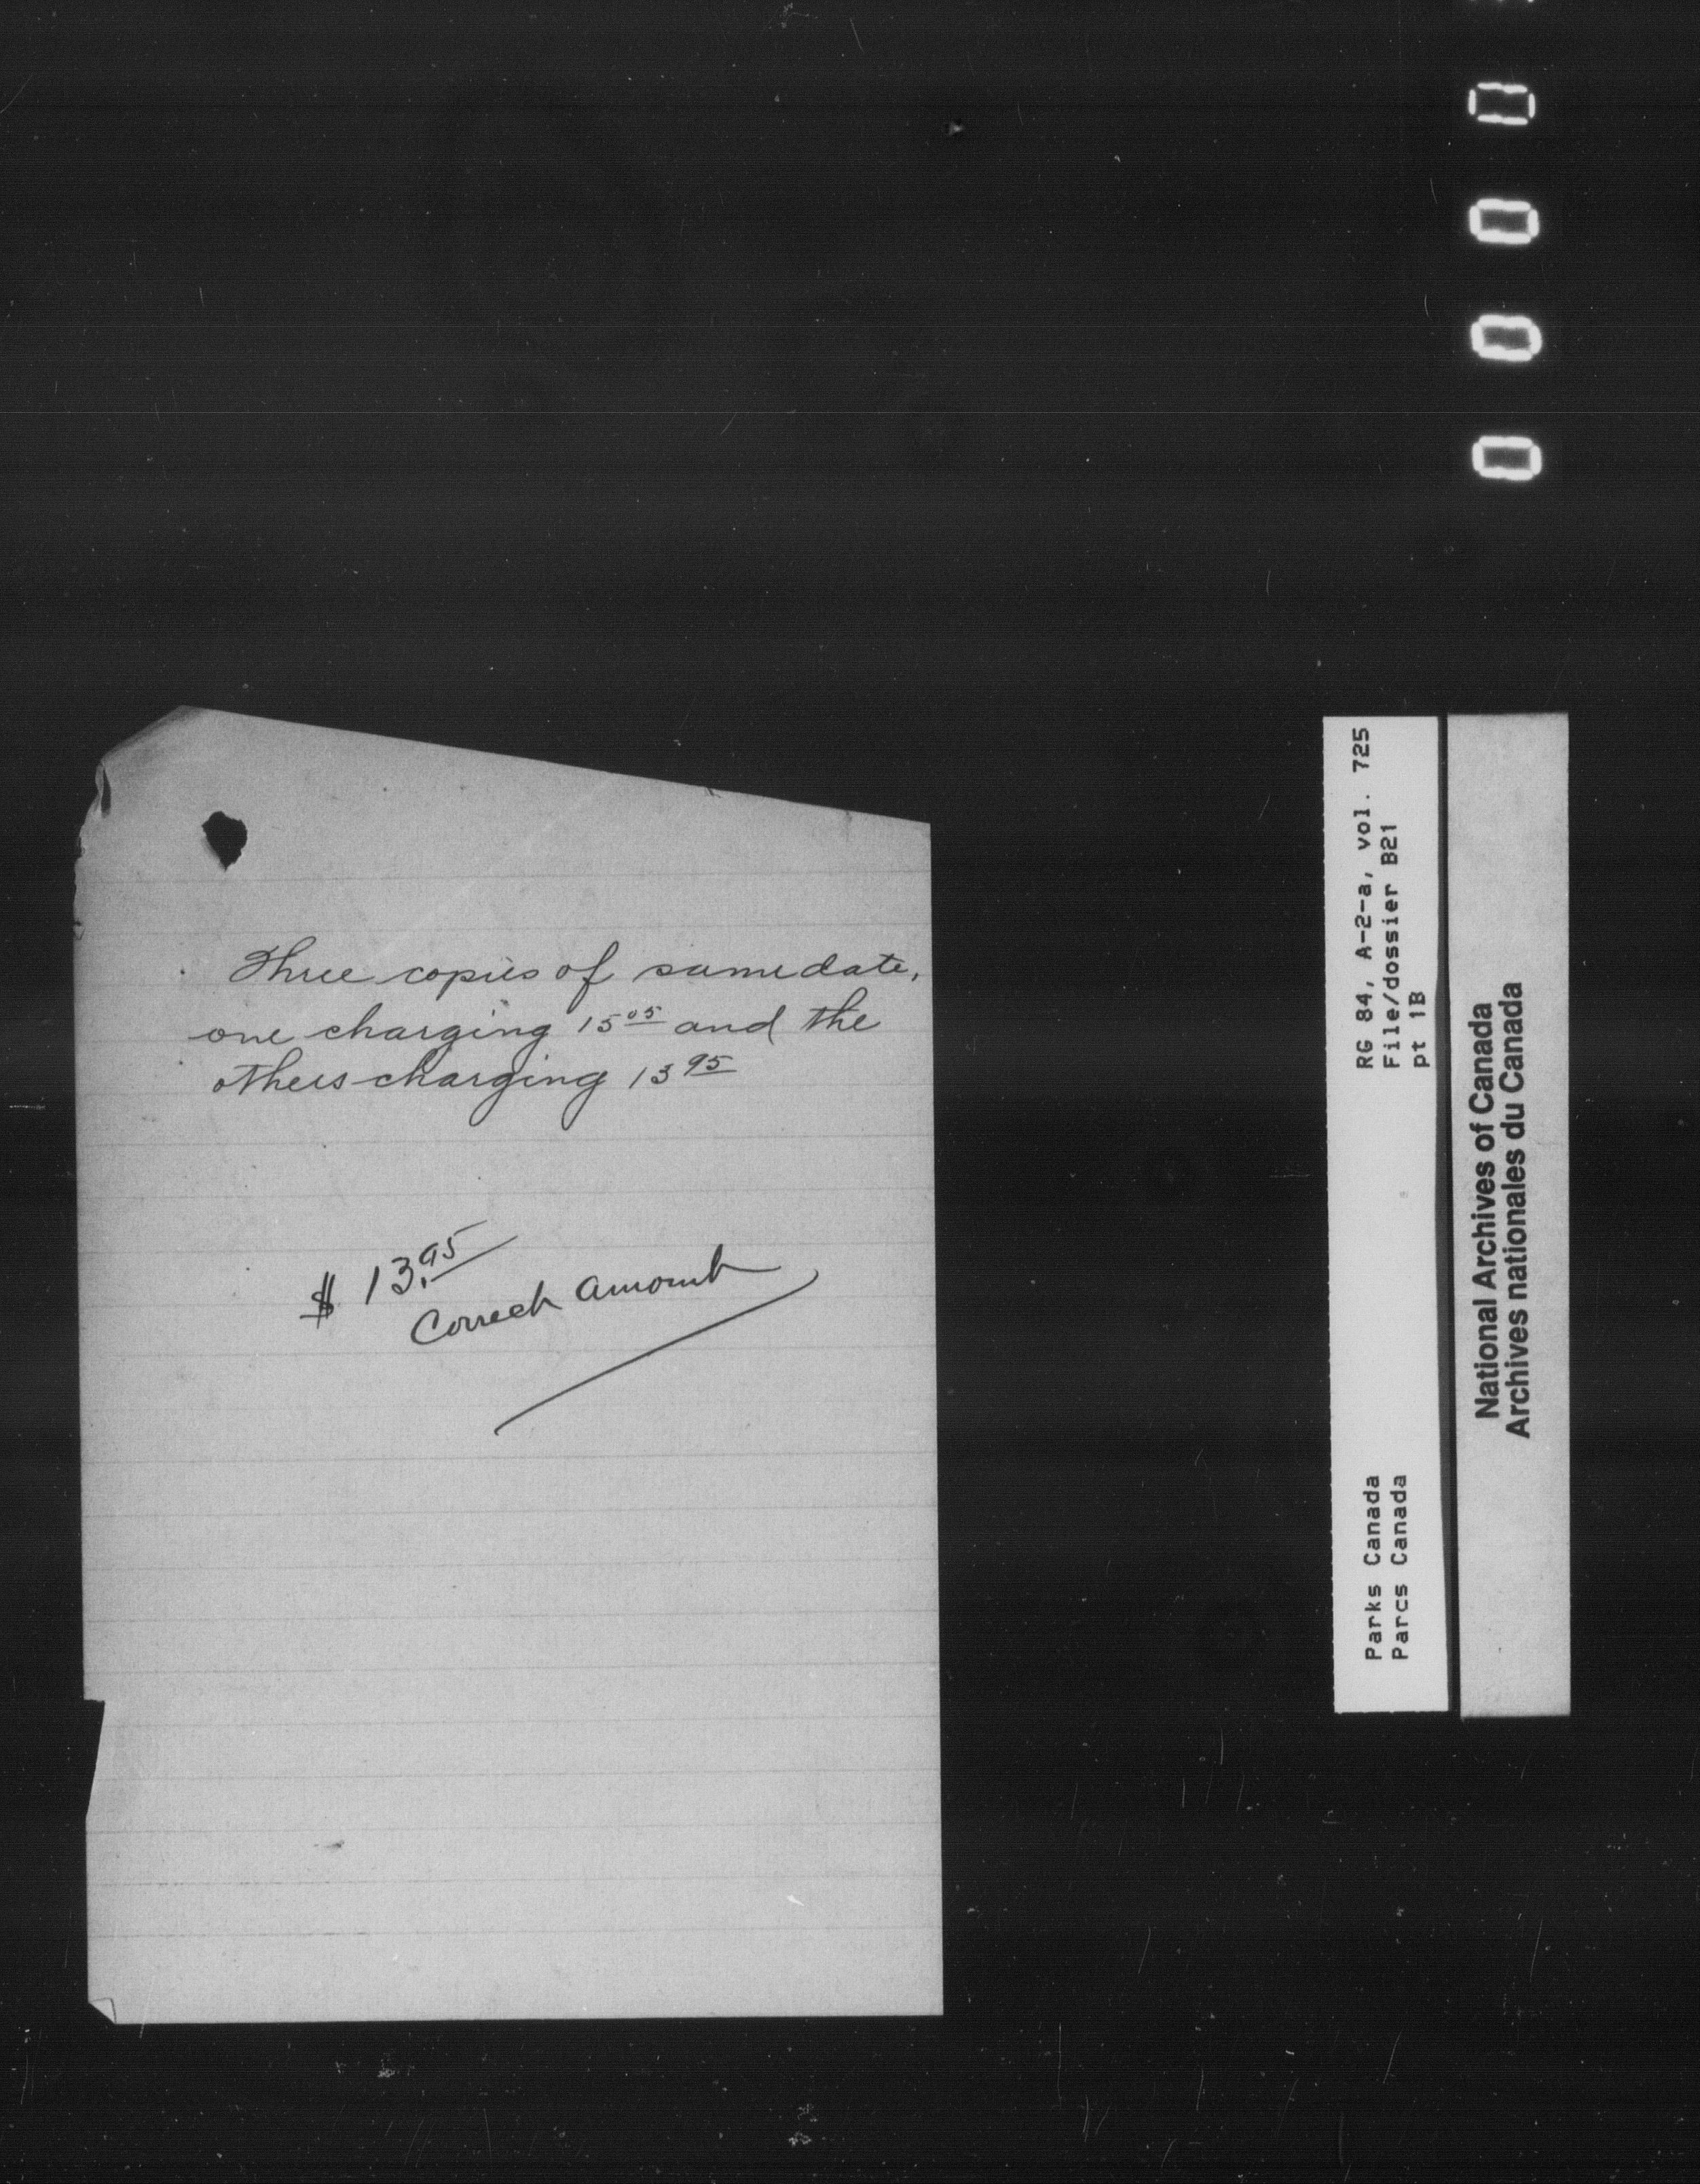 Three copies of same date,
one charging 15 05 and the
others charging 13 95
$ 13.95
Correct amount
RG 84, A-2-a, vol. 725
File/dossier B21
pt 1B
Parks Canada
Parcs Canada
National Archives of Canada
Archives nationales du Canada
0000